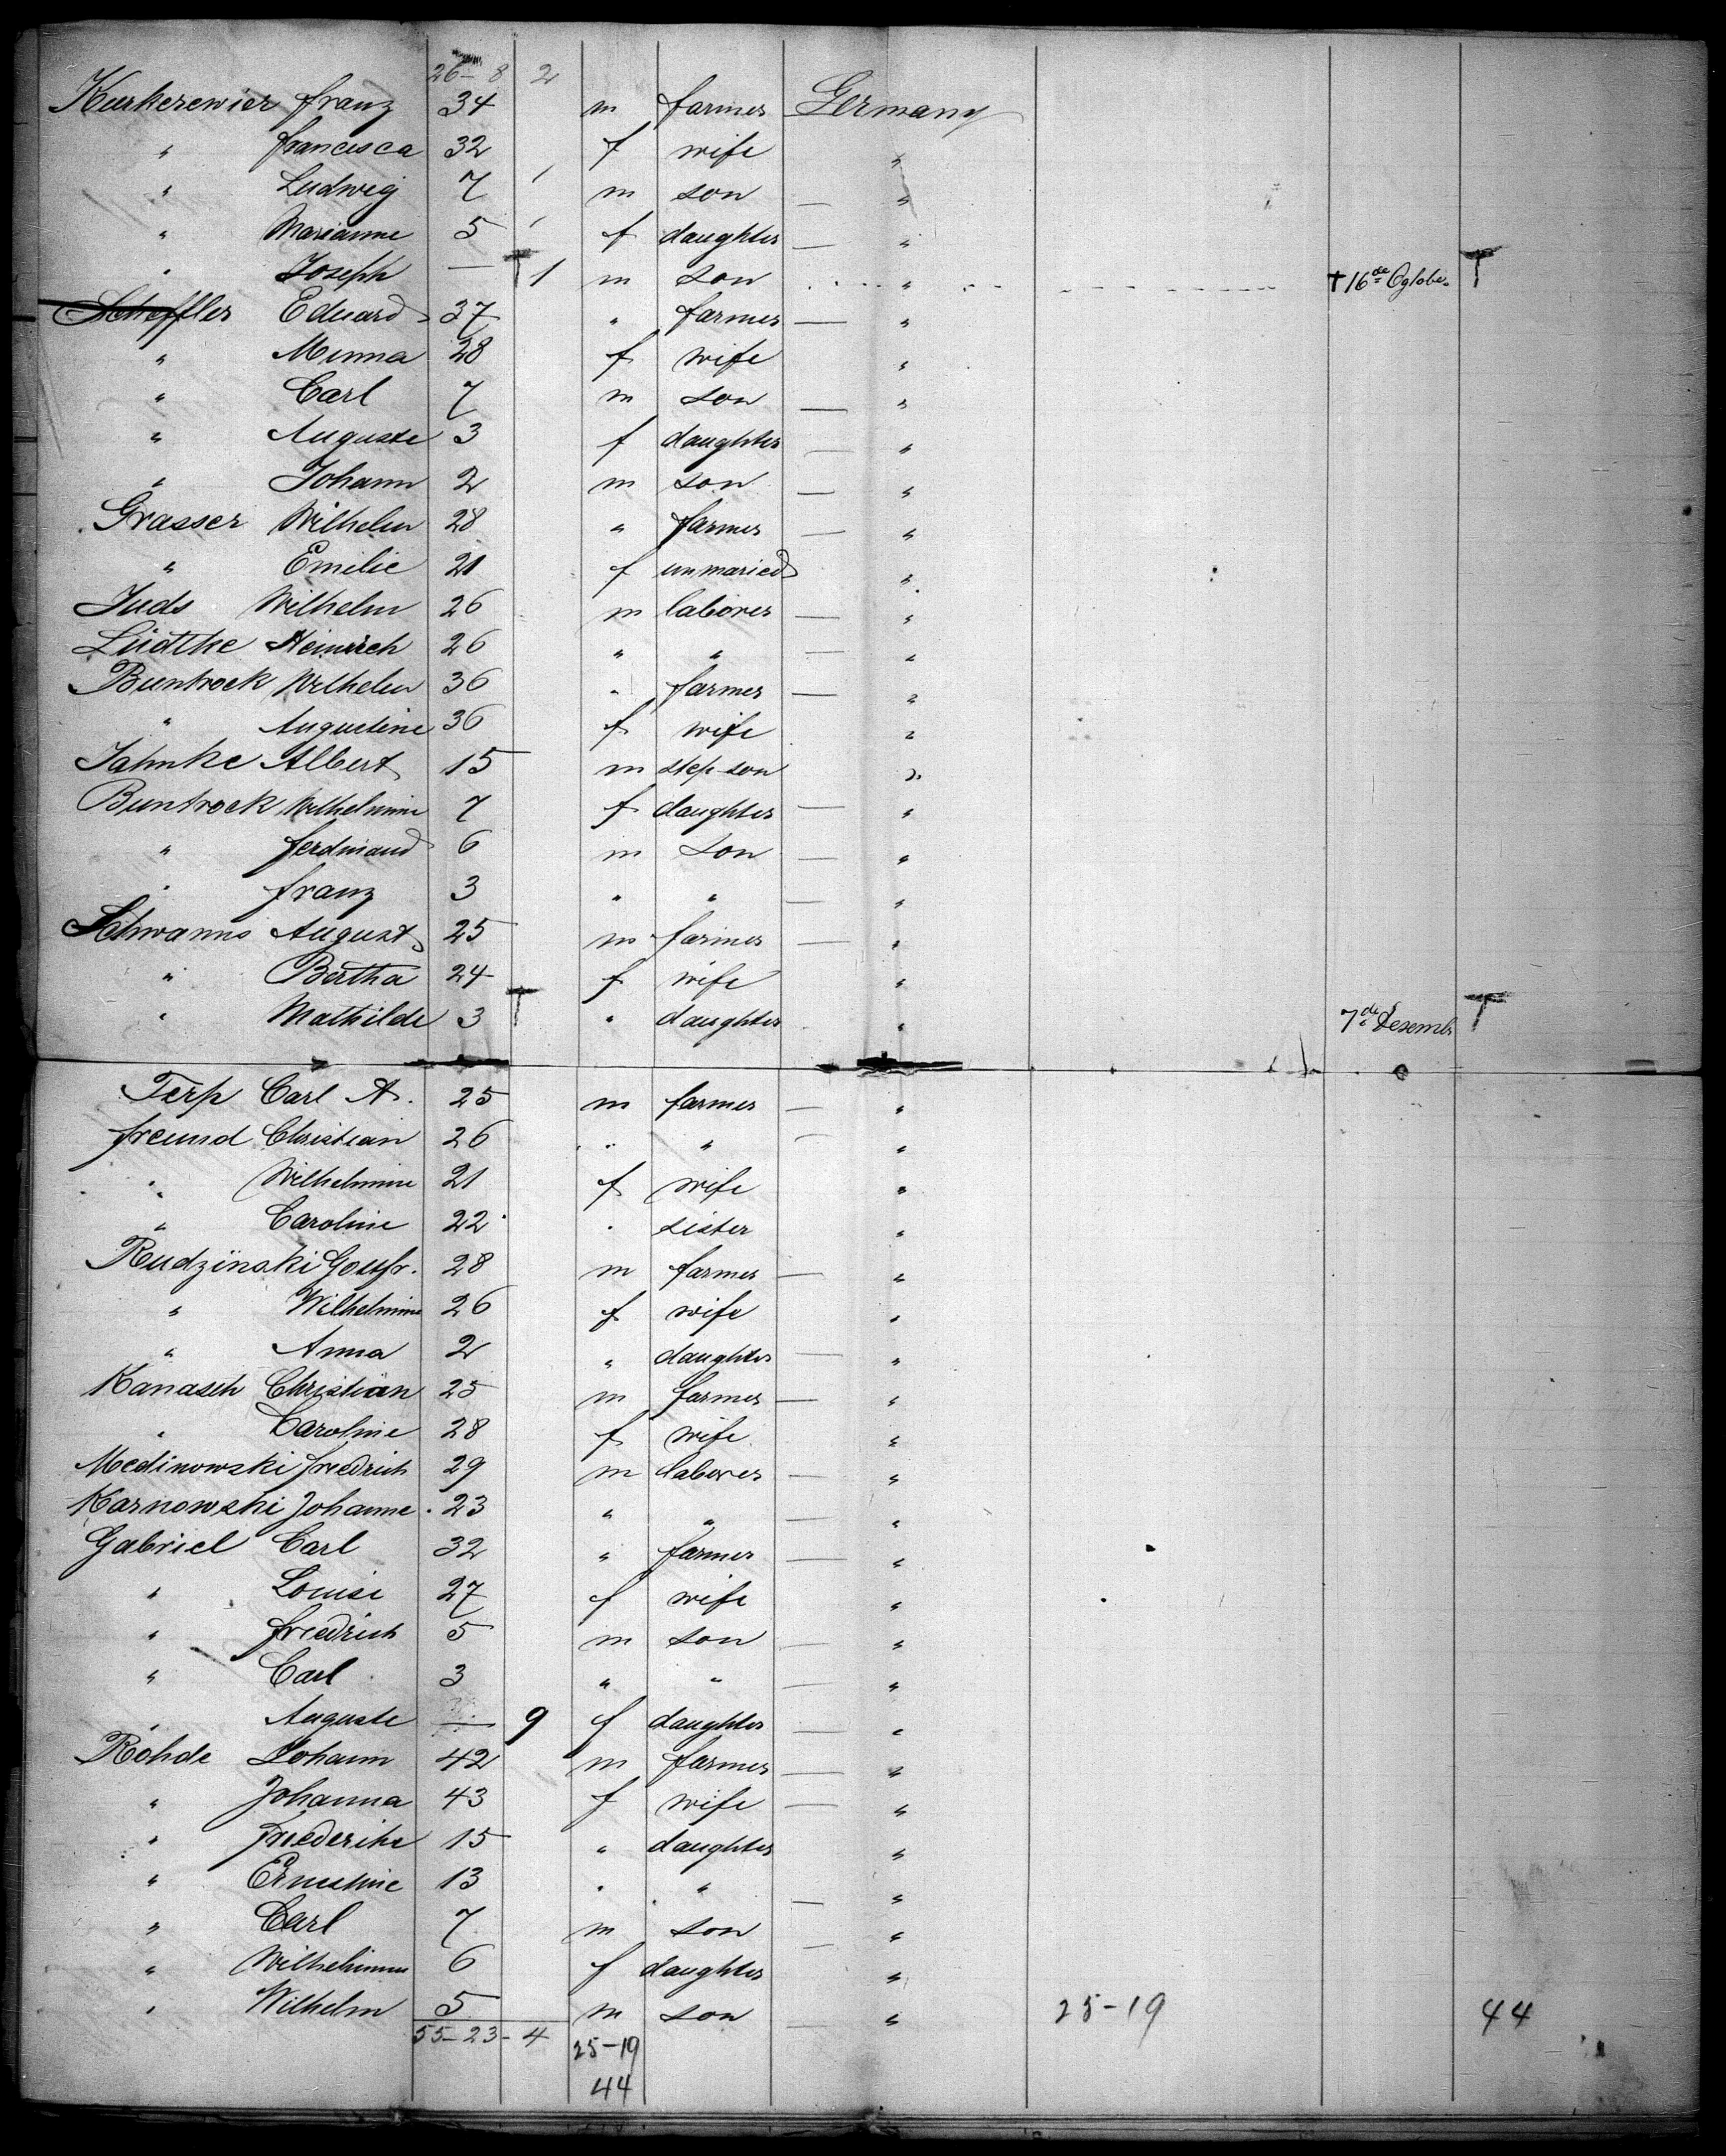 26 - 8 2
Kurkerewier franz 34 m farmer Germany
" francisca 32 f wife "
" Ludwig 7 m son — "
" Marianne 5 f daughter — "
" Joseph — T 1 m son " † 16de Oglober T
Scheffler Eduard 37 " farmer — "
" Minna 28 f wife "
" Carl 7 m son — "
" Auguste 3 f daughter — "
" Johann 2 m son — "
Grasser Wilhelm 28 " farmer — "
" Emilie 21 f unmaried "
Juds Wilhelm 26 m laborer — "
Lüdtke Heinrich 26 " " — "
Buntrock Wilhelm 36 " farmer — "
" Augustine 36 f wife "
Jahnke Albert 15 m step-son "
Buntrock Wilhelmine 7 f daughter — "
" ferdinand 6 m son — "
" franz 3 " " — "
Schwanns August 25 m farmer — "
" Bertha 24 f wife "
" Mathilde 3 T " daughter " 7de Desemb T
Terp Carl A. 25 m farmer — "
freund Christian 26 " " — "
" Wilhelmine 21 f wife "
" Caroline 22 " sister "
Rudzinski Gottfr. 28 m farmer — "
" Wilhelmine 26 f wife "
" Anna 2 " daughter — "
Kanasch Christian 25 m farmer — "
" Caroline 28 f wife "
Medinowski friedrich 29 m laborer — "
Karnowski Johanne 23 " " — "
Gabriel Carl 32 " farmer — "
" Louise 27 f wife "
" friedrich 5 m son — "
" Carl 3 " " — "
" Auguste — 9 f daughter — "
Rohde Johann 42 m farmer — "
" Johanna 43 f wife — "
" Friederike 15 " daughter "
" Ernestine 13 " " — "
" Carl 7 m son "
" Wilhelmine 6 f daughter — "
" Wilhelm 5 m son — " 25-19 44
55-23-4 25-19
44